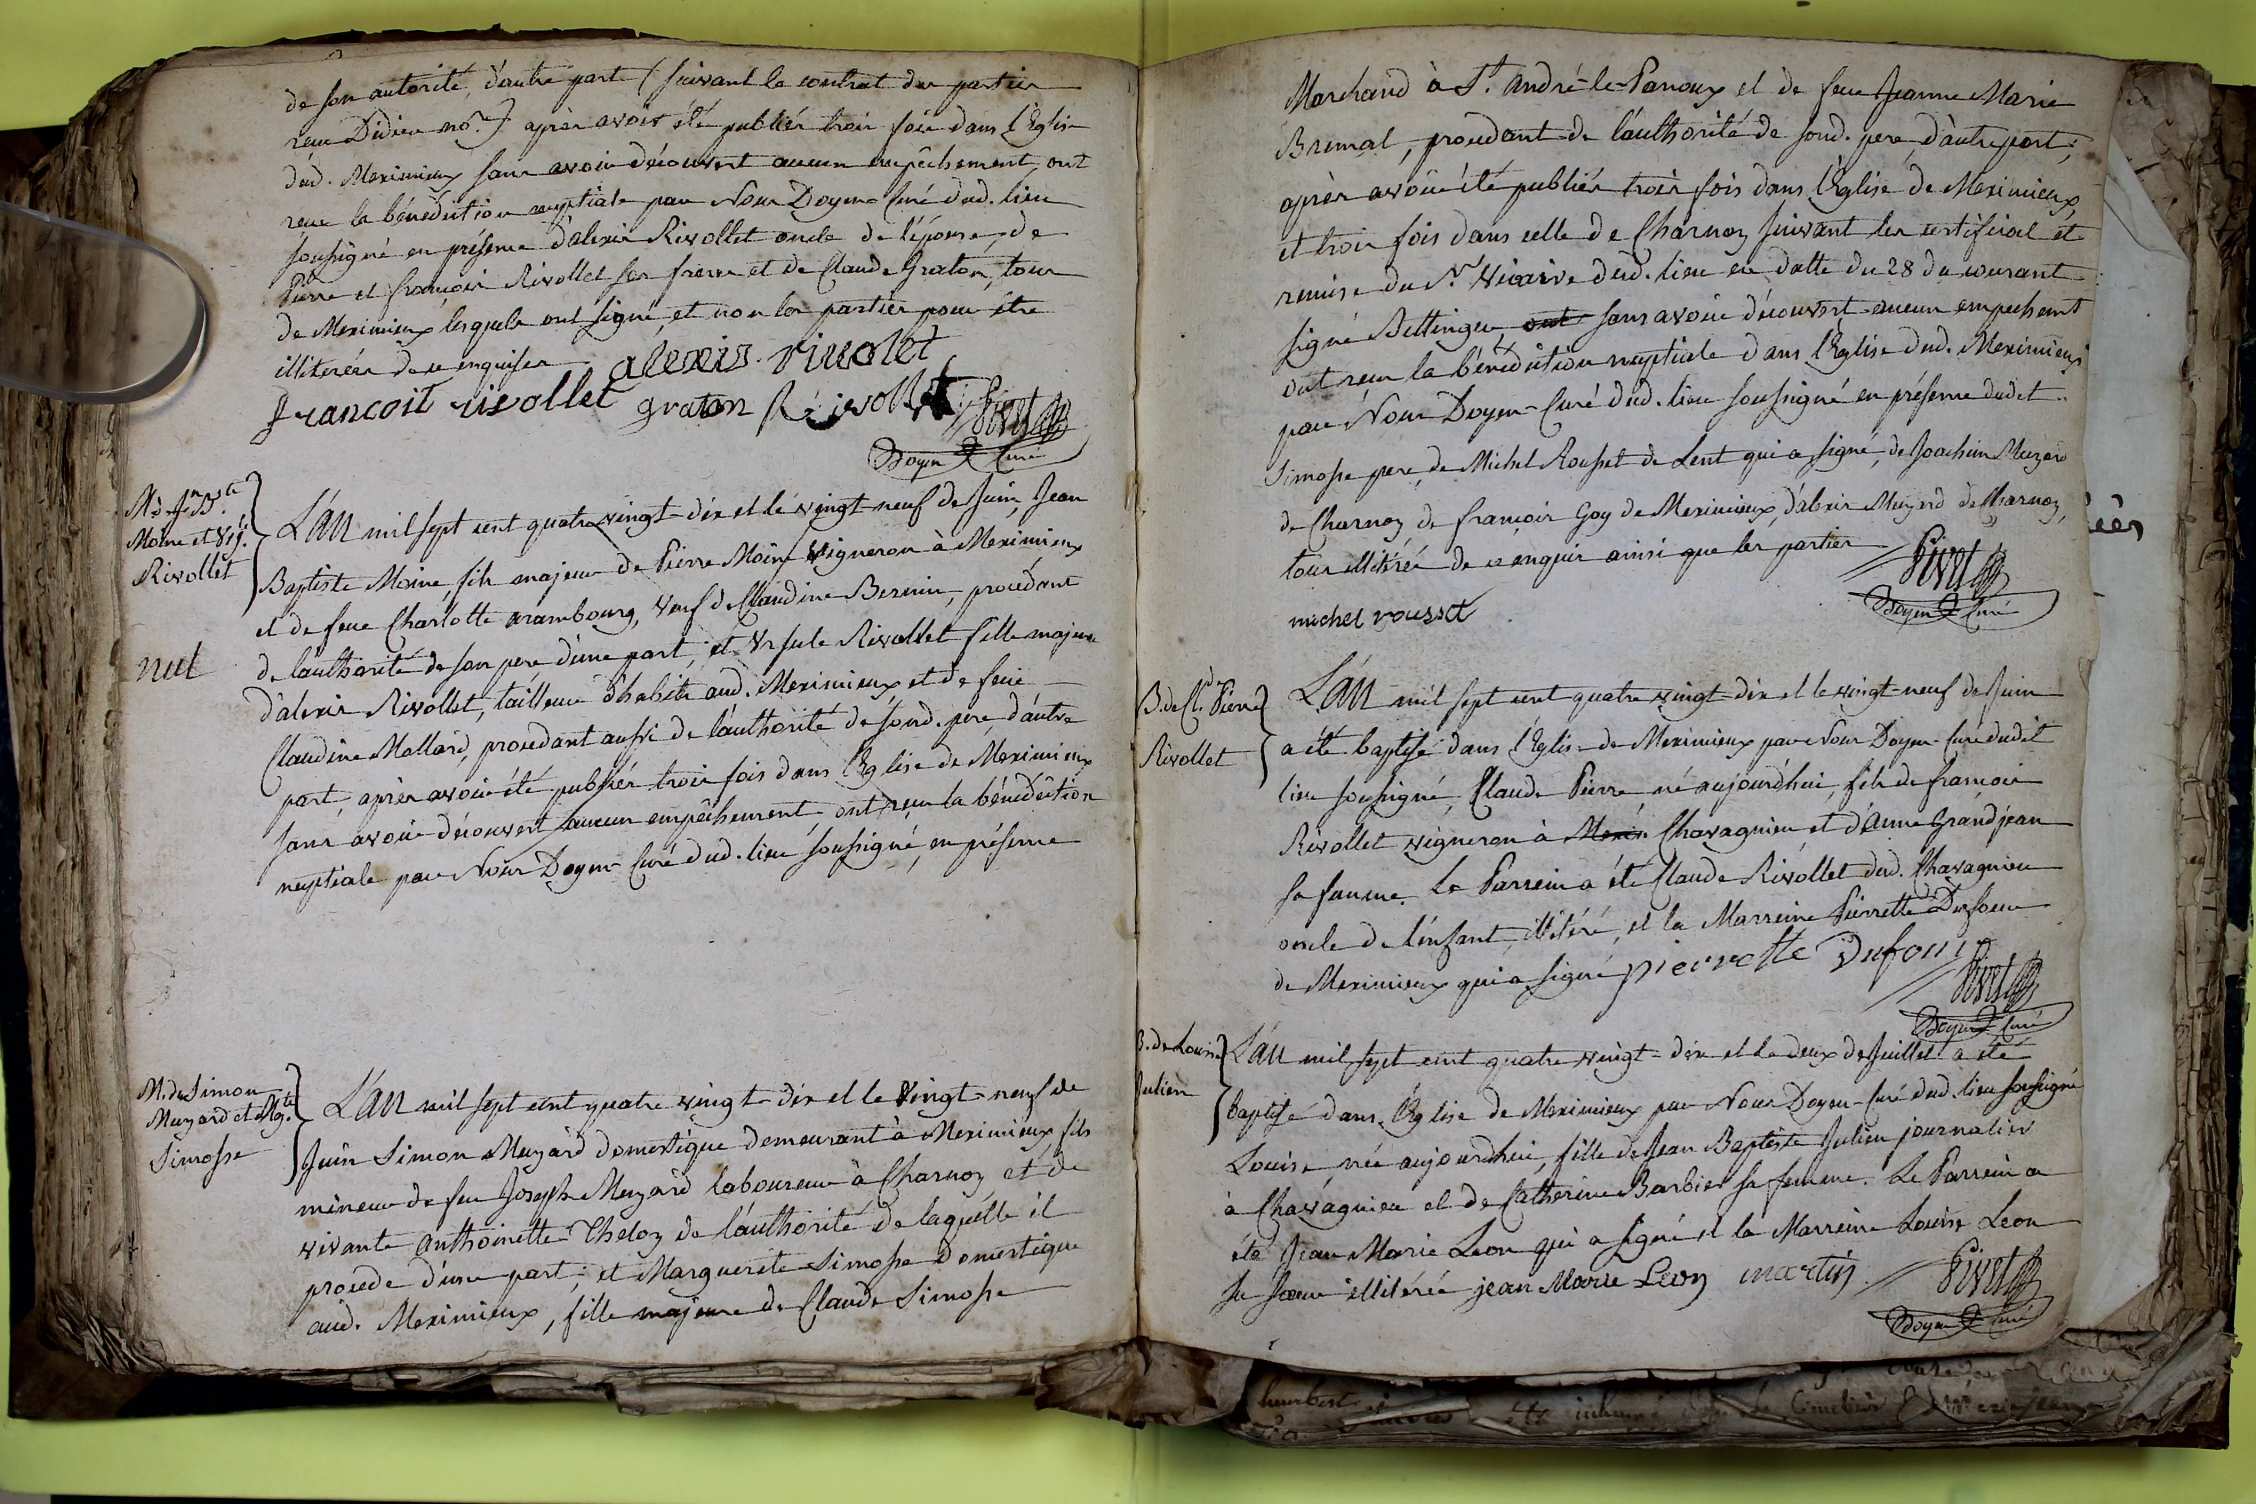 de son autorité, d'autre part (suivant le contrat des parties
reçu Didieu no.re) après avoir été publiés trois fois dans l'Eglise
dud. Meximieux sans avoir découvert aucun empêchement, ont
reçu la bénédiction nuptiale par Nous Doyen-Curé dud. lieu
soussigné en présence d'alexis Rivollet oncle de l'épouse, de
Pierre et françois Rivollet ses freres et de Claude Graton, tous
de Meximieux lesquels ont signé, et non les parties pour être
illiterées de ce enquises alexis rivolet
francoit rivollet graton Rivollet Pivet
Doyen Curé
M. de Jn Bte
Moine et Urs.
Rivollet
nul
L'An mil sept cent quatre vingt-dix et le vingt-neuf de Juin, Jean
Baptiste Moine, fils majeur de Pierre Moine Vigneron à Meximieux
et de feue Charlotte arambourg, veuf de Claudine Bernin, procédant
de l'authorité de son pere d'une part, et Ursule Rivollet fille majeure
d'alexis Rivollet, tailleur d'habits aud. Meximieux et de feue
Claudine Mallard, procedant aussi de l'authorité de sond. pere, d'autre
part, après avoir été publiés trois fois dans l'Eglise de Meximieux
sans avoir découvert aucun empêchement, ont reçu la bénédiction
nuptiale par Nous Doyen-Curé dud. lieu soussigné, en présence
M. de Simon
Muzard et Mg.te
Simosse
L'An mil sept cent quatre vingt-dix et le Vingt-neuf de
Juin Simon Muzard domestique demeurant à Meximieux fils
mineur de feu Joseph Muzard laboureur à Charnoz et de
vivante Anthoinette Theloz de l'authorité de laquelle il
procede d'une part; et Marguerite Simosse domestique
aud. Meximieux, fille majeure de Claude Simosse
Marchand à St. André-le-Panoux et de feue Jeanne Marie
Bremal, procedant de l'authorité de sond. pere, d'autre part;
après avoir été publiés trois fois dans l'Eglise de Meximieux,
et trois fois dans celle de Charnoz suivant les certificat et
remise du Sr. Vicaire dud. lieu en datte du 28 du courant
signé Bettinger, ont sans avoir découvert aucun empechemt
ont reçu la bénédiction nuptiale dans l'Eglise dud. Meximieux
par Nous Doyen-Curé dud. lieu soussigné en présence dudit
Simosse pere, de Michel Rousset de Lent qui a signé, de Joachim Muzard
de Charnoz, de françois Goy de Meximieux, d'alexis Muzard de Charnoz,
tous illitérés de ce enquis ainsi que les parties Pivet
michel rousset Doyen Curé
B. de Cl.de Pierre
Rivollet
L'An mil sept cent quatre vingt-dix et le vingt-neuf de Juin
a été baptisé dans l'Eglise de Meximieux par Nous Doyen-Curé dudit
lieu soussigné, Claude Pierre né aujourd'hui, fils de françois
Rivollet vigneron à Chavagnieu et d'Anne Grandjean
sa femme. Le Parrein a été Claude Rivollet dud. Chavagnieu
oncle de l'enfant, illitéré, et la Marreine Pierrette Dufour
de Meximieux qui a signé pierrette Dufour Pivet
Doyen Curé
B. de Louise
Julien
L'An mil sept cent quatre vingt-dix et le deux de Juillet a été
baptisé dans l'Eglise de Meximieux par Nous Doyen-Curé dud. lieu soussigné
Louise née aujourd'hui, fille de Jean Baptiste Julien journalier
à Chavagnieu et de Catherine Barbier sa femme. Le Parrein a
été Jean Marie Leon qui a signé et la Marreine Louise Leon
sa soeur illitérée jean Marie Leon martin Pivet
Doyen Curé